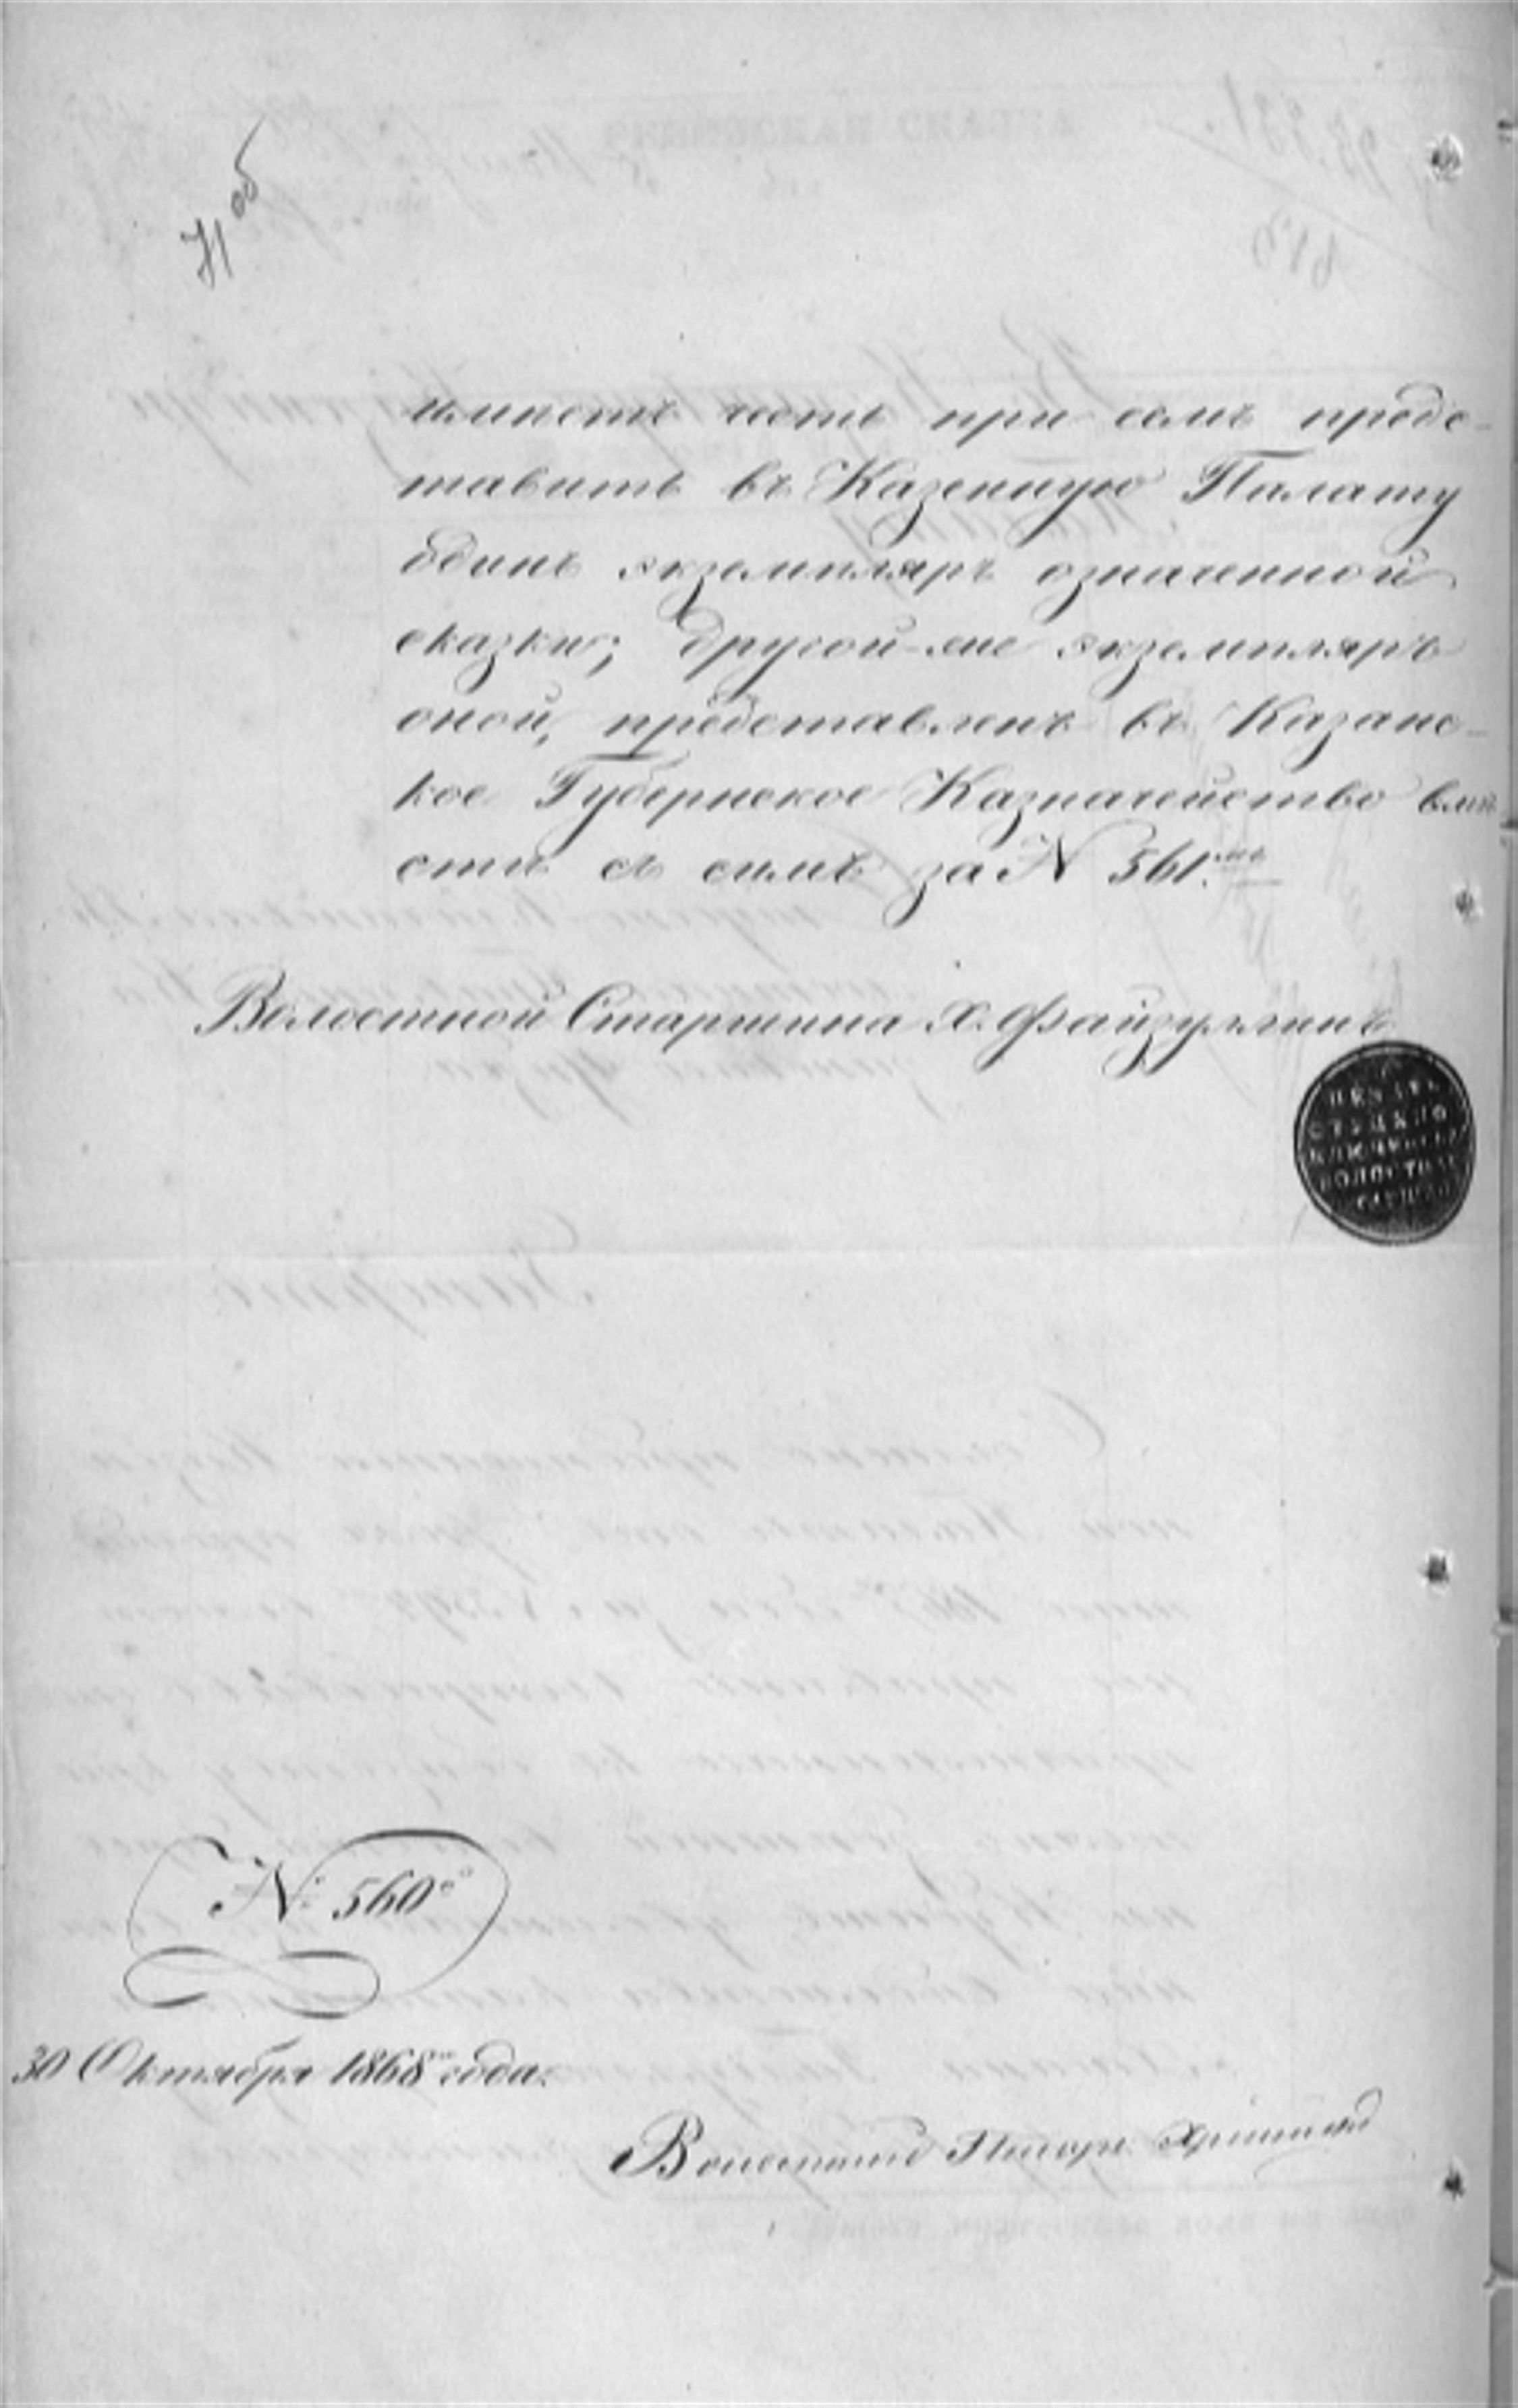 71 об
имѣетъ честь при семъ предс-
тавить въ Казенную Палату
одинъ экземпляръ означенной
сказки; другой-же экземпляръ
оной, представленъ въ Казанс-
кое Губернское Казначейство вмѣ
стѣ съ симъ за N 561.мъ
Волостной Старшина Х. Файзуллинъ
ПЕЧАТЬ
ВОЛОСТН
№ 560
30 Октября 1868 года.
Волостной Писарь